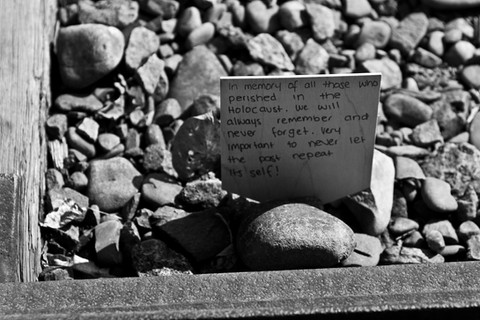 In memory of all those who
perished in the
Holocaust. We will
always remember and
never forget. Very
important to never let
the past repeat
its self!